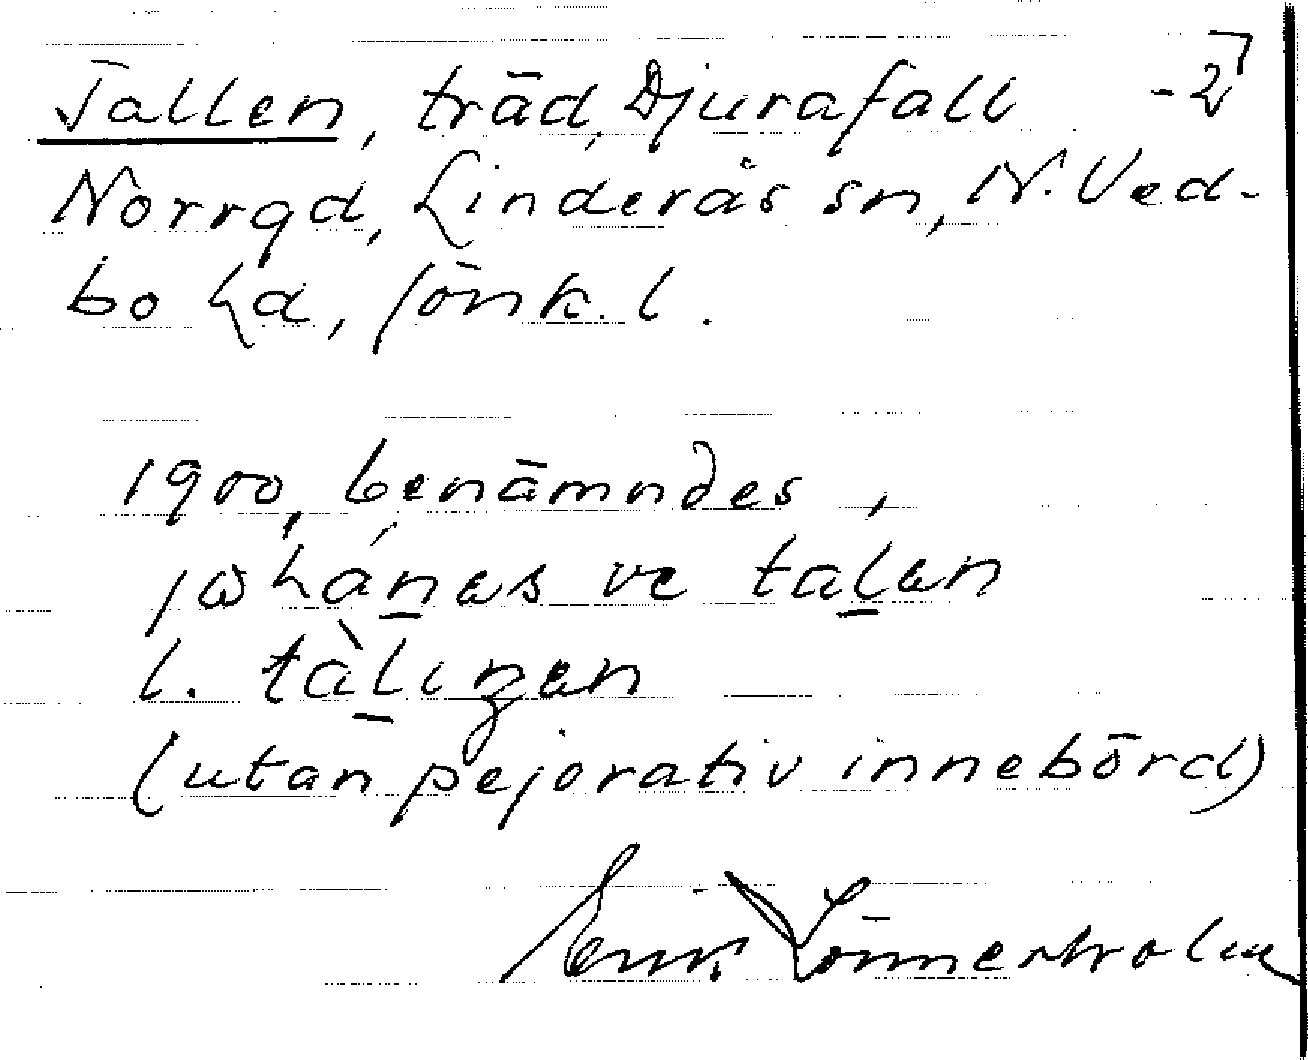 Tallen, träd, Djurafall -2
Norrgd, Linderås sn, N. Ved-
bo hd, Jönk. l.
1900, benämndes,
johánas ve talan
l. tàlızan
(utan pejorativ innebörd)
Erik Lönnerholm